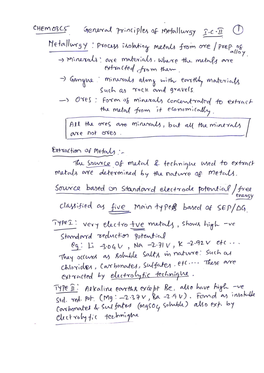 CHEM0325 General principles of Metallurgy I-C-II 1
Metallurgy : Process isolating metals from ore / prep of alloy.
→ Minerals : are materials where the metals are
extracted from them
→ Gangue : minerals along with earthly materials
such as rock and gravels
→ Ores : Form of minerals concentrated to extract
the metal from it economically.
All the ores are minerals, but all the minerals
are not ores.
Extraction of Metals :-
The Source of metal & technique used to extract
metals are determined by the nature of Metals.
Source based on Standard electrode potential / free energy
Classified as five Main types based of SEP/ΔG
Type I : very electro +ve metals, shows high -ve
Standard reduction potential
Eg: Li -3.04V, Na -2.71V, K -2.92V etc...
They occurs as soluble salts in nature. Such as
Chlorides, Carbonates, Sulfates, etc.... These are
extracted by electrolytic technique.
Type II : Alkaline earths except Be, also have high -ve
Std. red. Pot. (Mg: -2.37V, Ba -2.9V). Found as insoluble
Carbonates & Sulfates (MgSO₄ soluble) also ext. by
Electrolytic technique